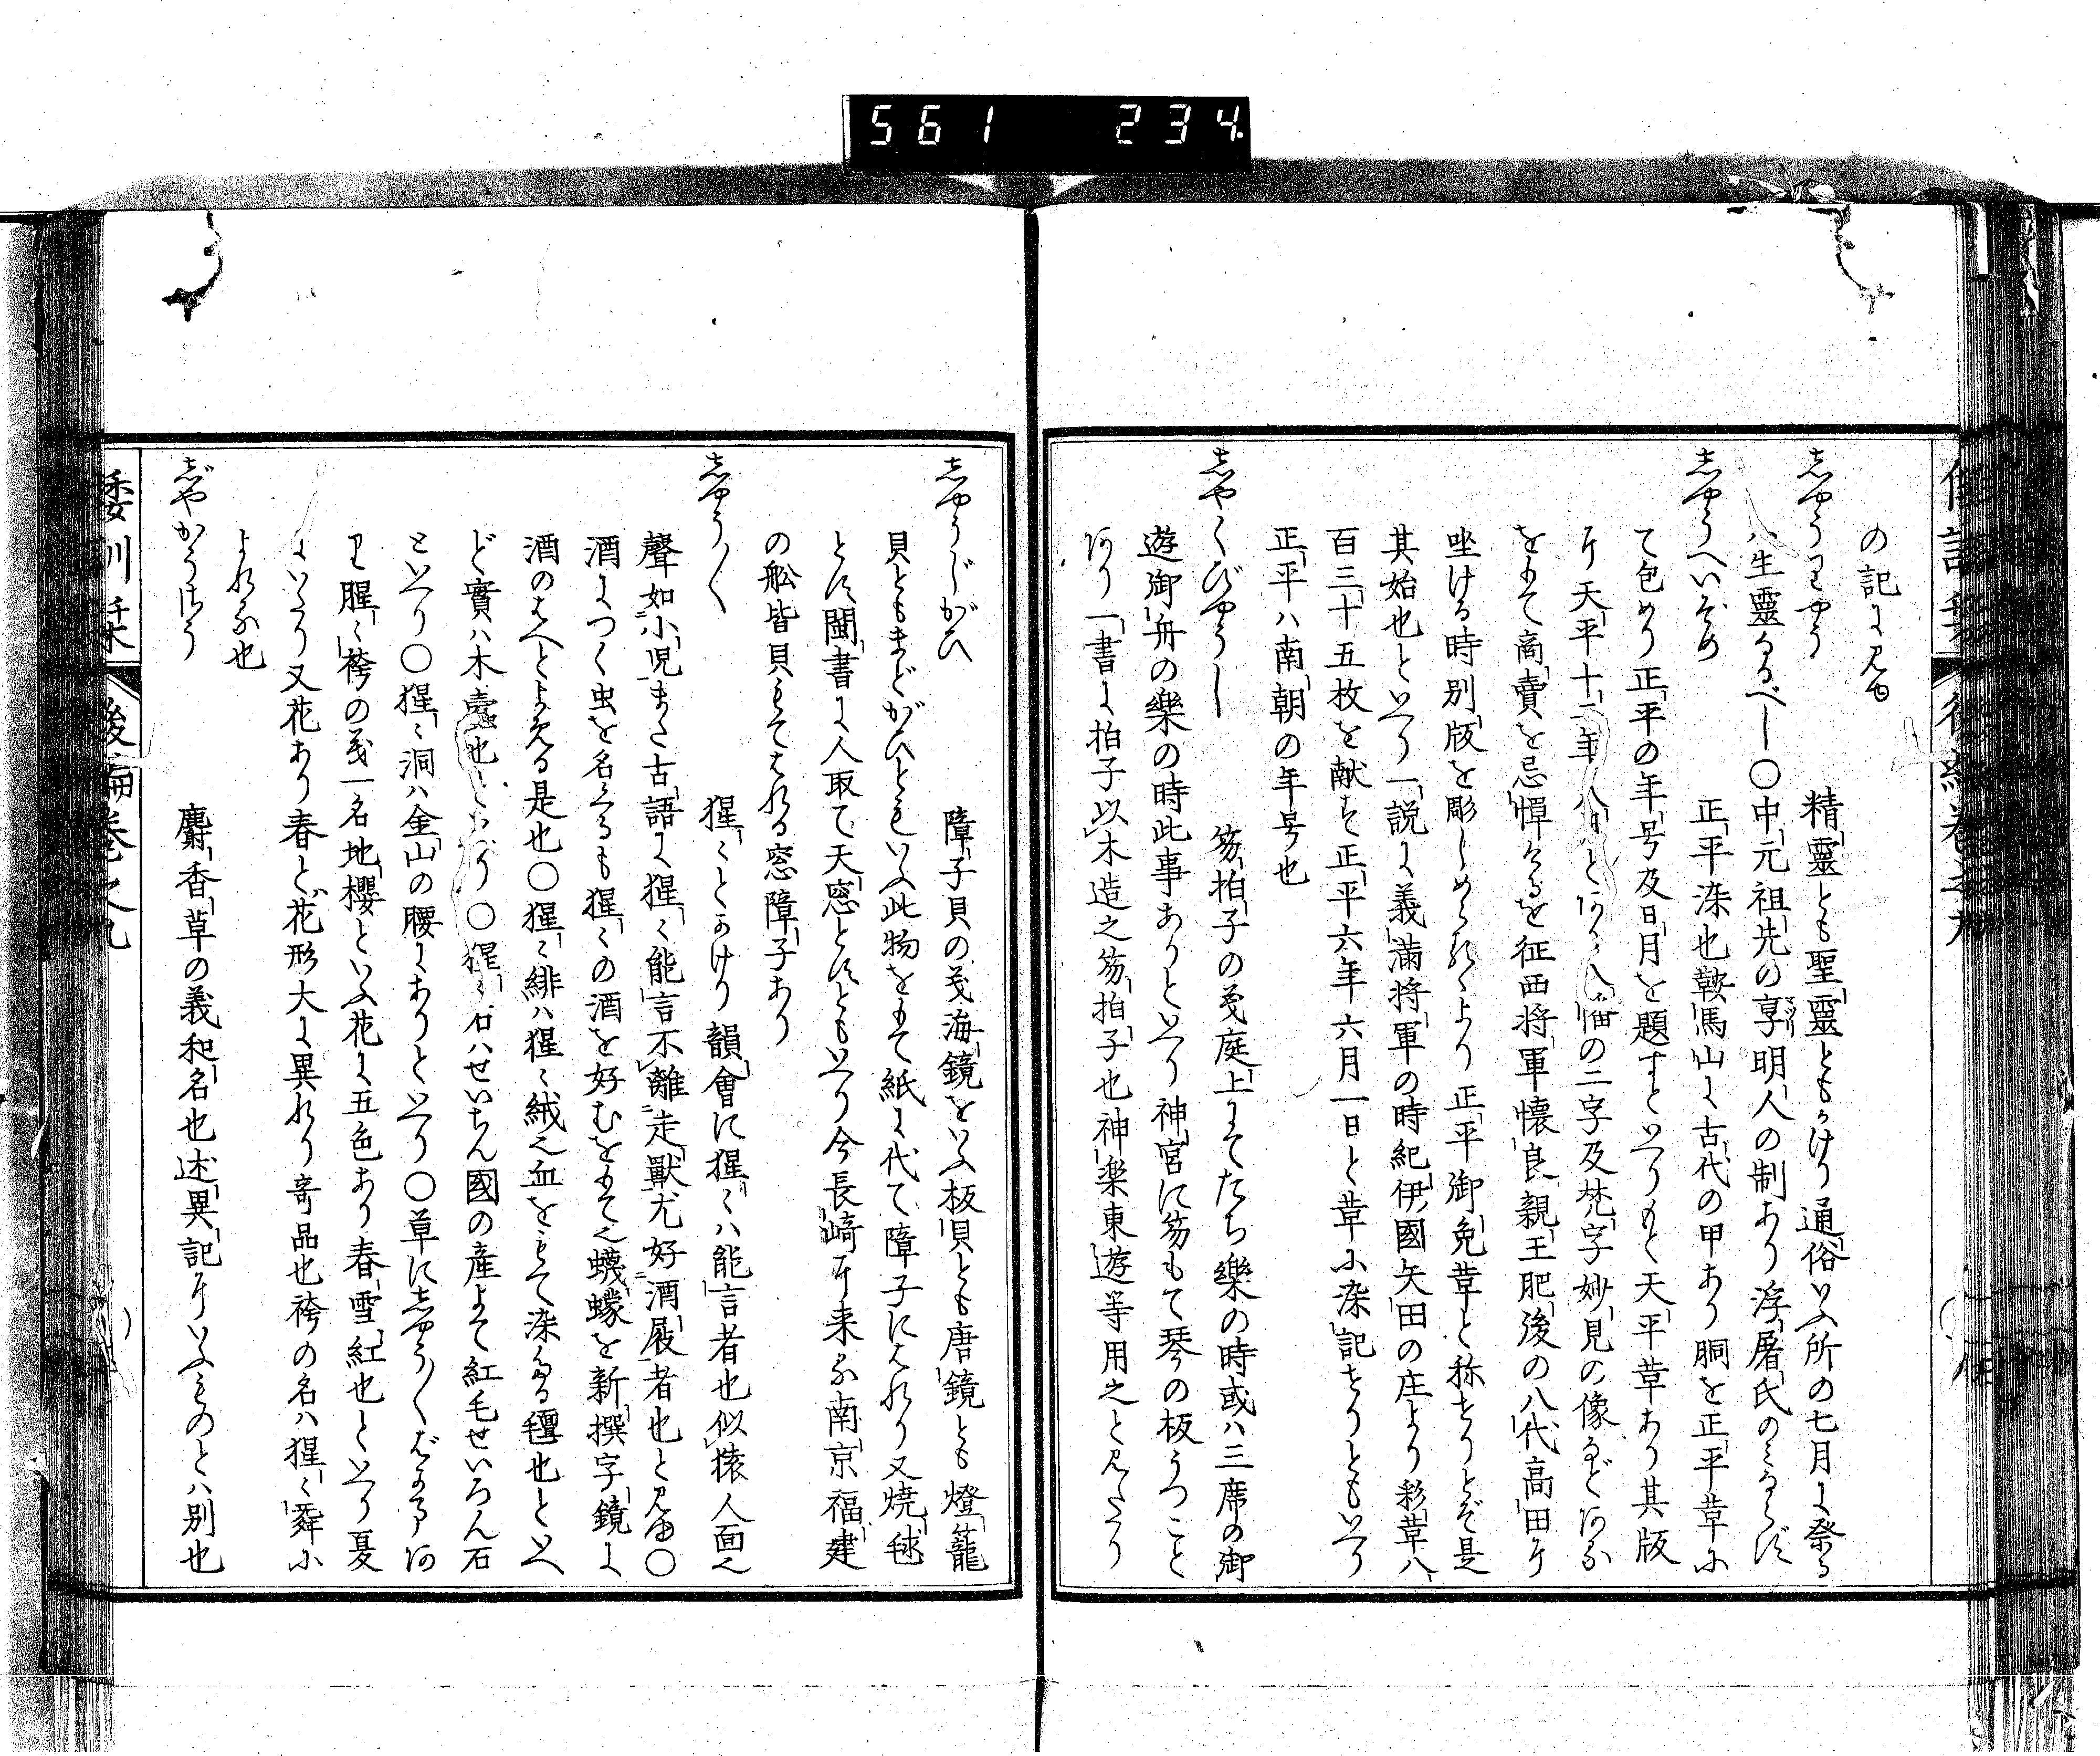 561 234.
の記に見ゆ
志やうりやう 精靈とも聖靈ともかけり通俗いふ所の七月に祭る
ハ生靈なるべし〇中元祖先の享明人の制あり浮屠氏のミならず
志やうへいぞめ 正平染也鞍馬山に古代の甲あり胴を正平革ニ
て包めり正平の年号及日月を題すといへりもと天平革あり其版
に天平十二年八月とあり八幡の二字及梵字妙見の像などあるが
をもて商賣を忌憚りけるを征西将軍懐良親王肥後の八代高田に
坐ける時別版を彫しめられしより正平御免革と称せりとぞ是
其始也といへり一説に義満将軍の時紀伊國矢田の庄より彩革八
百三十五枚を献す正平六年六月一日と革に染記せりともいへり
正平ハ南朝の年号也
志やくびやうし 笏拍子の義庭上にてたち樂の時或ハ三席の御
遊御舟の樂の時此事ありといへり神宮に笏もて琴の板うつこと
あり一書に拍子以木造之笏拍子也神楽東遊等用之と見えたり
志やうじがひ 障子貝の義海鏡をいふ板貝とも唐鏡とも燈籠
貝ともまどがひともいふ此物をもて紙に代て障子にはれり又焼毬
とす閩書に人取て天窓とすともいへり今長崎に来る南京福建
の舩皆貝もてはれる窓障子あり
志やう〱 猩〻とかけり韻會に猩〻ハ能言者也似猿人面之
聲如小児また古語に猩〻能言不離走獣尤好酒屐者也と見ゆ〇
酒につく虫を名くるも猩〻の酒を好むをもて之蠛蠓を新撰字鏡に
酒のはへとよめる是也〇猩〻緋ハ猩〻絨之血をもて染る氈也といへ
ど實ハ木蠹也といへり〇猩〻石ハせいらん國の産にて紅毛せいろん石
といへり〇猩〻洞ハ金山の腰にありといへり〇草に志やう〱ばかまあ
り猩〻袴の義一名地櫻といふ花に五色あり春雪紅也といへり夏
にいたり又花あり春と花形大に異れり奇品也袴の名ハ猩〻舞に
よれる也
志゛やかうさう 麝香草の義和名也述異記にいふものとハ別也
倭訓栞 後編巻之九